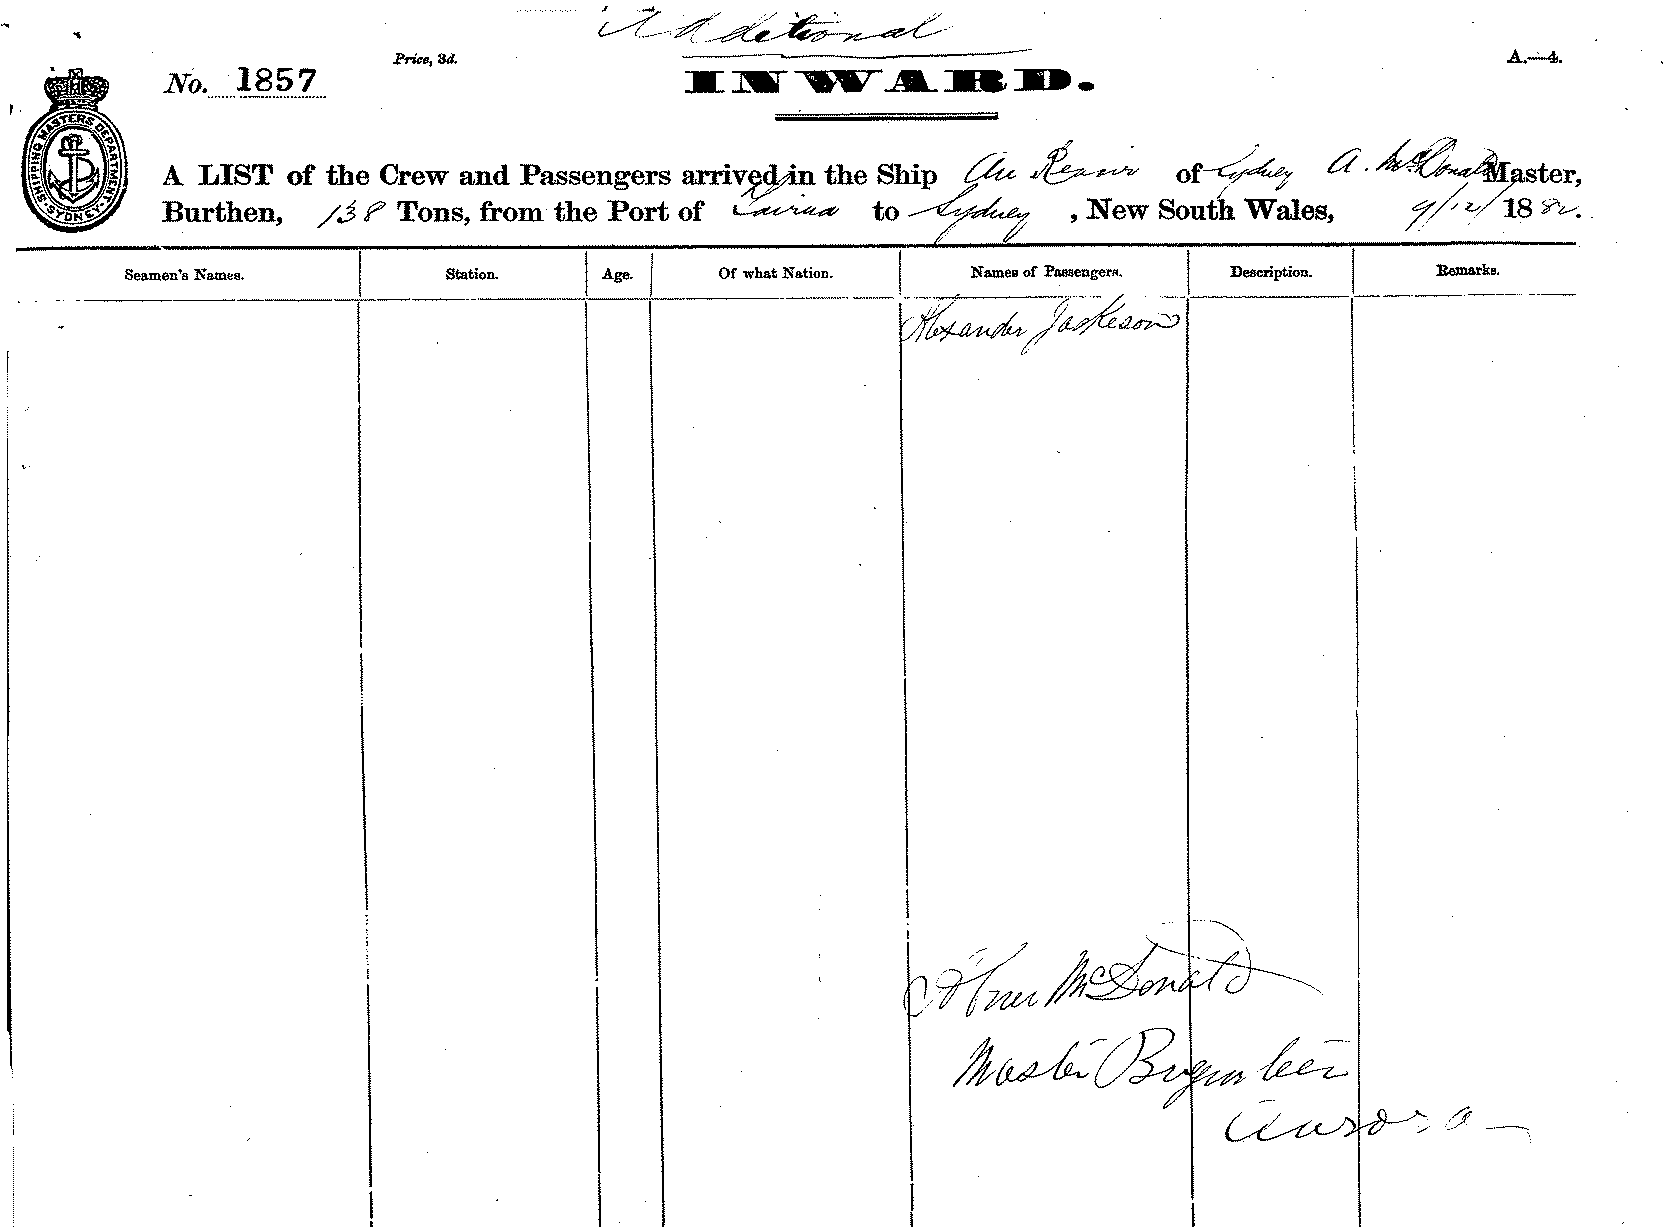 Additional
Price, 3d.
A.—4.
No. 1857
INWARD.
SHIPPING MASTERS DEPARTMENT. SYDNEY.
A LIST of the Crew and Passengers arrived in the Ship of Sydney A. McDonald Master,
Burthen, 138 Tons, from the Port of Tairua to Sydney, New South Wales, 9/12/1882.
Seamen's Names. Station. Age. Of what Nation. Names of Passengers. Description. Remarks.
Alexander Jackeson
Abner McDonald
Master
Aurora